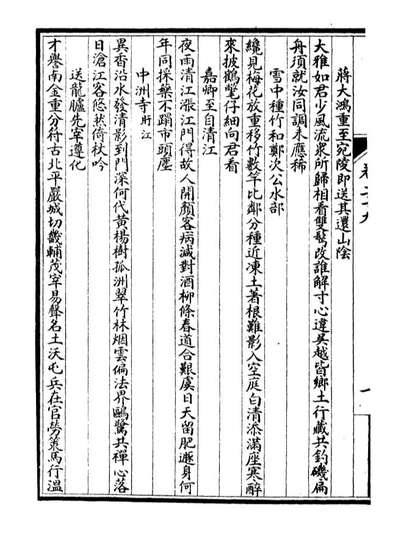 蔣大鴻重至宛陵即送其還山陰
大雅如君少風流衆所歸相看雙鬂改誰解寸心違吳越皆鄉土行藏共釣磯扁
舟須就汝同調未應稀
雪中種竹和鄭次公水部
纔見梅花放重移竹數竿比鄰分種近凍土著根難影入空庭白清添滿座寒醉
來披鶴氅仔細向君看
嘉卿至自清江
夜雨清江漲江門得故人開顏客病減對酒柳條春道合艱虞日天留肥遯身何
年同採藥不蹋市頭塵
中洲寺 肝江
異香沿水發清影到門深何代黃楊樹孤洲翠竹林烟雲偏法界鷗鷺共禪心落
日滄江客悠然倚杖吟
送龍臚先宰遵化
才譽南金重分符古北平嚴城切畿輔茂宰易聲名土沃屯兵在官勞策馬行溫
卷二十九
一